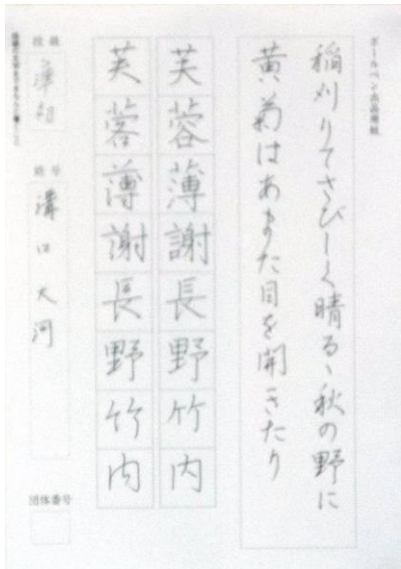 ボールペン出品用紙
稲刈りてさびしく晴るゝ秋の野に
黄菊はあまた目を開きたり
芙蓉薄謝長野竹内
芙蓉薄謝長野竹内
段級
準初
姓号
溝口大河
団体番号